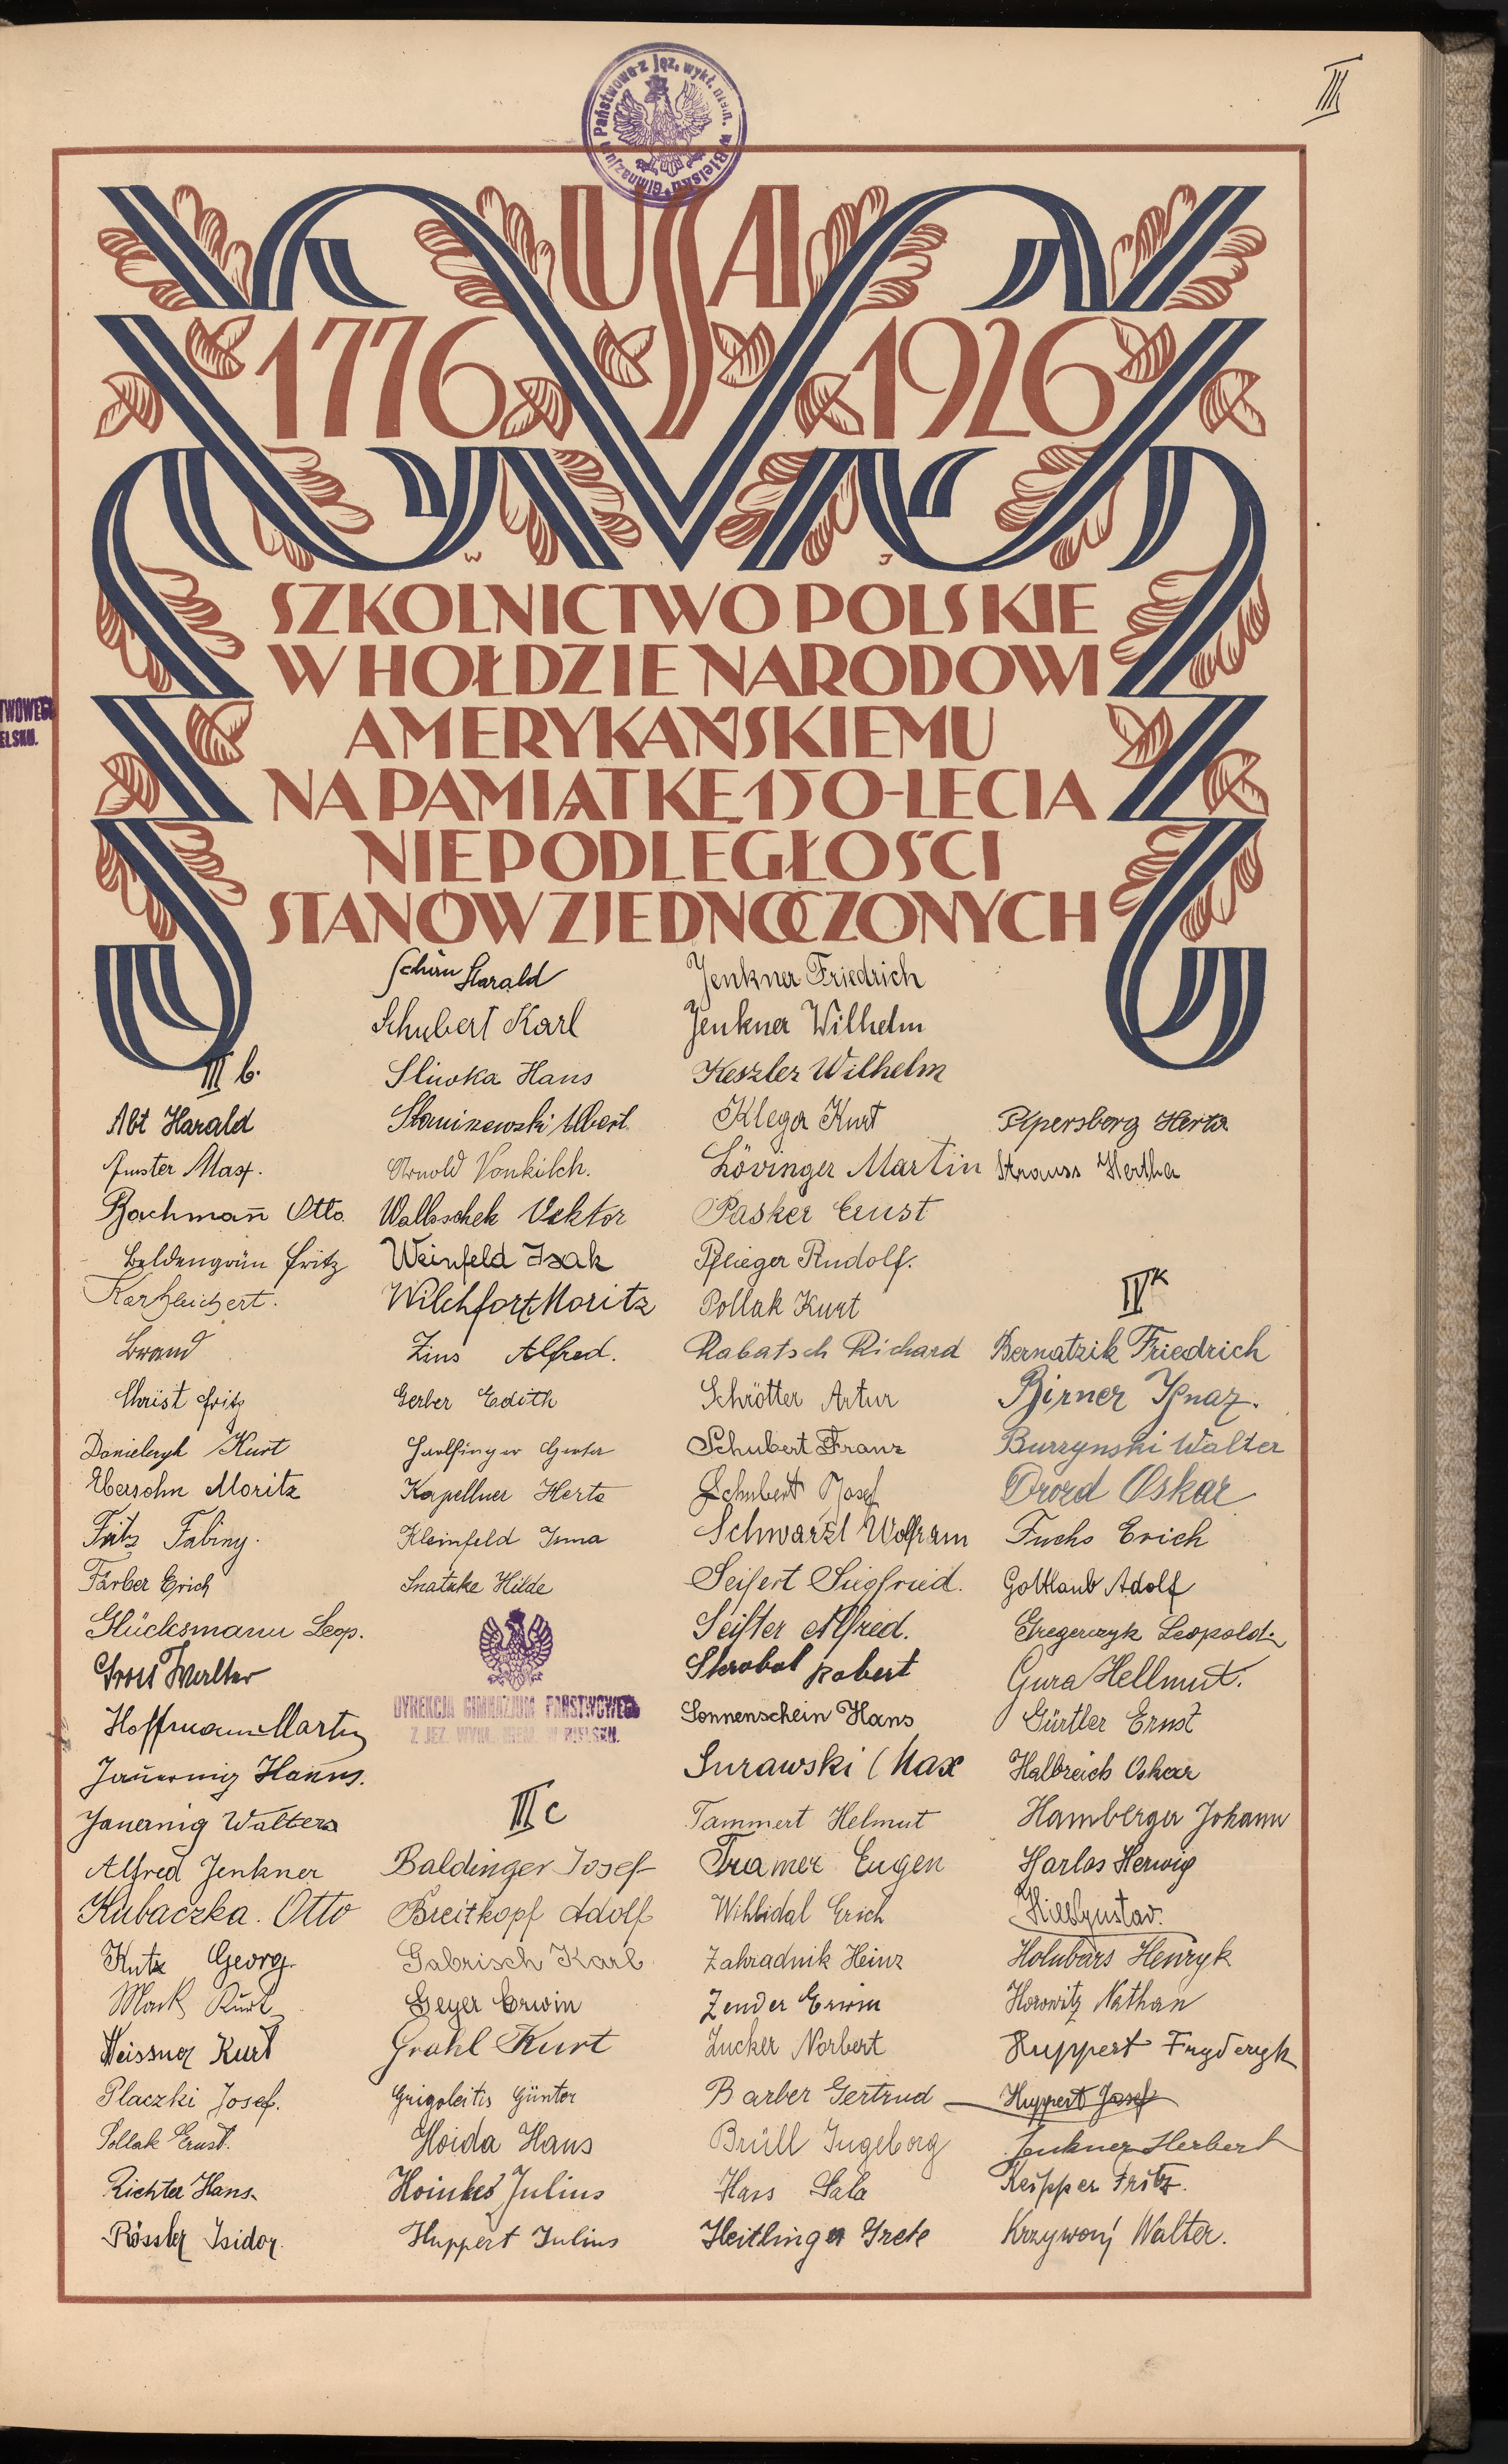 III
Gimnazjum Państwowe z jęz. wykł. niem. w Bielsku
USA
1776 1926
W J
SZKOLNICTWO POLSKIE
W HOŁDZIE NARODOWI
AMERYKAŃSKIEMU
NA PAMIĄTKĘ 150-LECIA
NIEPODLEGŁOŚCI
STANÓW ZJEDNOCZONYCH
TWOWEGO
ELSKU.
III b.
Abt Harald
Amster Max.
Bachmann Otto
Beldengrün Fritz
Karl
Brand
Christ Fritz
Danielczyk Kurt
Ebersohn Moritz
Fritz Fabiny.
Färber Erich
Glücksmann Leop.
Gross Walter
Hoffmann Martin
Jauernig Hanns.
Jauernig Walter
Alfred Jenkner
Kubaczka. Otto
Kutx Georg.
Mack Kurt
Meissner Kurt
Placzki Josef.
Pollak Ernst.
Richter Hans.
Rössler Isidor.
Schirn Harald
Schubert Karl
Sliwka Hans
Albert
Arnold Vonkilch.
Walloschek Viktor
Weinfeld Isak
Wilchfort Moritz
Zins Alfred.
Gerber Edith
Kapellner Herta
Kleinfeld Irma
Snatzke Hilde
DYREKCJA GIMNAZJUM PAŃSTWOWEGO
Z JĘZ. WYKŁ. NIEM. W BIELSKU.
III c
Baldinger Josef
Breitkopf Adolf
Gabrisch Karl
Geyer Erwin
Grahl Kurt
Grigoleitis Günter
Hoida Hans
Hoinkes Julius
Huppert Julius
Jenkner Friedrich
Jenkner Wilhelm
Keszler Wilhelm
Klega Kurt
Lövinger Martin
Pasker Ernst
Pflieger Rudolf.
Pollak Kurt
Rabatsch Richard
Schrötter Artur
Schubert Franz
Schubert Josef
Schwarzl Wolfram
Seifert Siegfried.
Seifter Alfred.
Skrobol Robert
Sonnenschein Hans
Surawski Max
Tammert Helmut
Tramer Eugen
Wihlidal Erich
Zahradnik Heinz
Zender Erwin
Zucker Norbert
Barber Gertrud
Brüll Ingeborg
Hass Sala
Heitlinger Grete
Pipersberg Herta
Strauss Hertha
IV K
Bernatzik Friedrich
Birner Ignaz.
Burzynski Walter
Drozd Oskar
Fuchs Erich
Gottlaub Adolf
Gregerczyk Leopold.
Gura Hellmut.
Gürtler Ernst
Halbreich Oskar
Hamberger Johann
Harlos Herwig
Hilbgustav.
Holubars Henryk
Horowitz Nathan
Huppert Fryderyk
Huppert Josef
Jenkner Herbert
Keipper Fritz.
Krzywoń Walter.